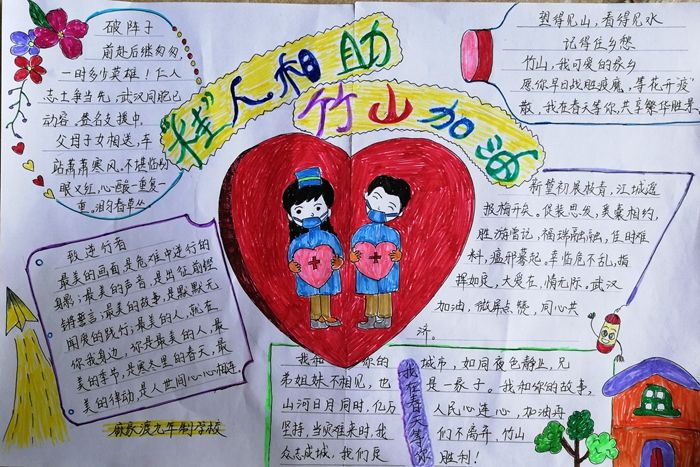 "桂"人相助
竹山加油
破阵子
前赴后继匆匆,
一时多少英雄!仁人
志士争当先,武汉同胞已
动容,签名支援中,
父母子女相送,车
站肃肃寒风。不堪临别
眼又红,心酸一重复一
重。泪勺春草丛
望得见山,看得见水
记得住乡愁
竹山,我可爱的家乡
愿你早日战胜疫魔,等花开疫
散,我在春天等你,共享繁华胜景
致逆行者
最美的画面是危难中逆行的
身影;最美的声音,是出征前铿
锵誓言;最美的故事,是默默无
闻爱的践行;最美的人,就在
你我身边,你是最美的人,最
美的季节,是寒冬里的春天,最
美的律动,是人世间心心相连。
麻家渡九年制学校
新堂初展披青,江城遥
报梅开矣。促装思发,美集相约,
胜游曾记。福瑞融融,佳时难
料,瘟邪蓦起。幸临危不乱,指
挥如定,大爱在,情无际,武汉
加油,微屏点赞,同心共
济。
我和 你的
弟姐妹不相见,也
山河日月同时,亿万
坚持,当灾难来时,我
众志成城,我们是
我在春天等你
城市,如同夜色静止,兄
是一家子。我和你的故事,
人民心连心,加油再
们不离弃,竹山
胜利!